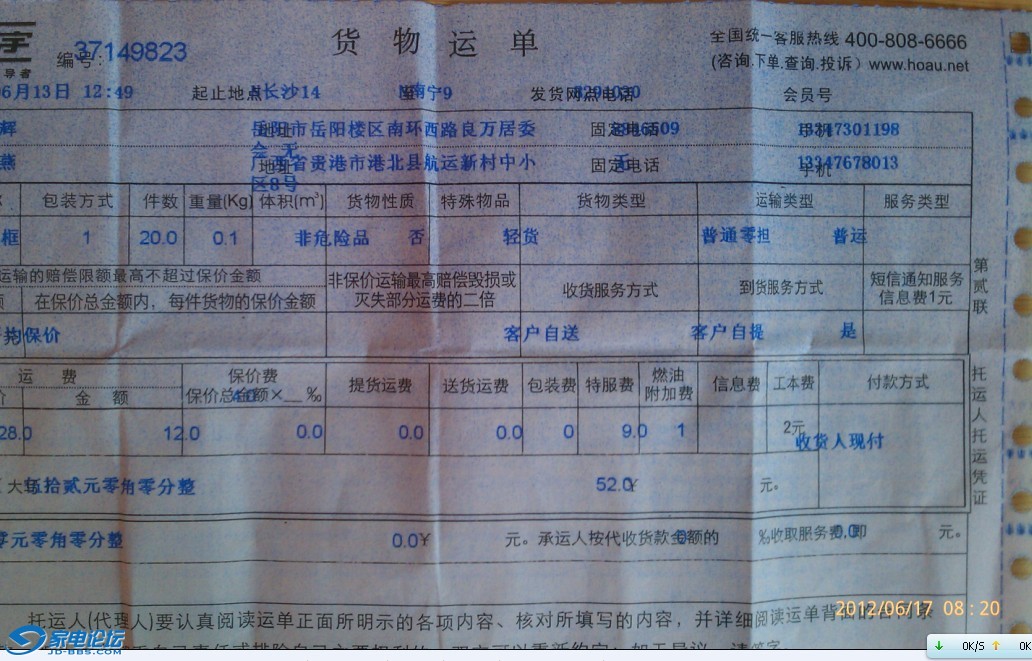 宇
导者
编号: 37149823
货物运单
全国统一客服热线 400-808-6666
(咨询.下单.查询.投诉) www.hoau.net
6月13日 12:49 起止地点 长沙14 至 南宁9 发货网点电话 会员号
辉 地址 岳阳市岳阳楼区南环西路良万居委会 无 固定电话 手机 13347301198
燕 地址 广西省贵港市港北县航运新村中小区8号 固定电话 无 手机 13347678013
包装方式 件数 重量(Kg) 体积(m³) 货物性质 特殊物品 货物类型 运输类型 服务类型
框 1 20.0 0.1 非危险品 否 轻货 普通零担 普运
运输的赔偿限额最高不超过保价金额 非保价运输最高赔偿毁损或灭失部分运费的二倍 收货服务方式 到货服务方式 短信通知服务信息费1元
在保价总金额内，每件货物的保价金额
均保价 客户自送 客户自提 是
运 费 保价费 提货运费 送货运费 包装费 特服费 燃油附加费 信息费 工本费 付款方式
价 金 额 保价总金额×__‰
28.0 12.0 0.0 0.0 0.0 0 9.0 1 2元 收货人现付
大写 伍拾贰元零角零分整 52.0 ¥ 元。
零元零角零分整 0.0 ¥ 元。承运人按代收货款金额的 0 %收取服务费,即 0.0 元。
托运人(代理人)要认真阅读运单正面所明示的各项内容、核对所填写的内容，并详细阅读运单背面的合同条
第贰联
托运人托运凭证
2012/06/17 08:20
家电论坛
JD-BBS.COM
0K/S 0K